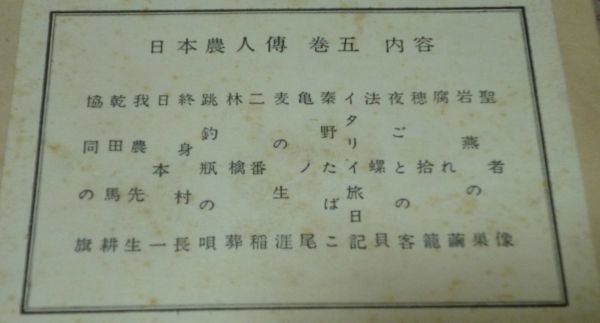 日本農人傳 巻五 内容
聖者像
岩燕の巣
腐れ繭
穂拾籠
夜ごとの客
法螺貝
イタリイ旅日記
秦野たばこ
亀ノ尾
麦の生涯
二番稲
林檎葬
跳釣瓶の唄
終身村長
日本一
我農先生
乾田馬耕
協同の旗